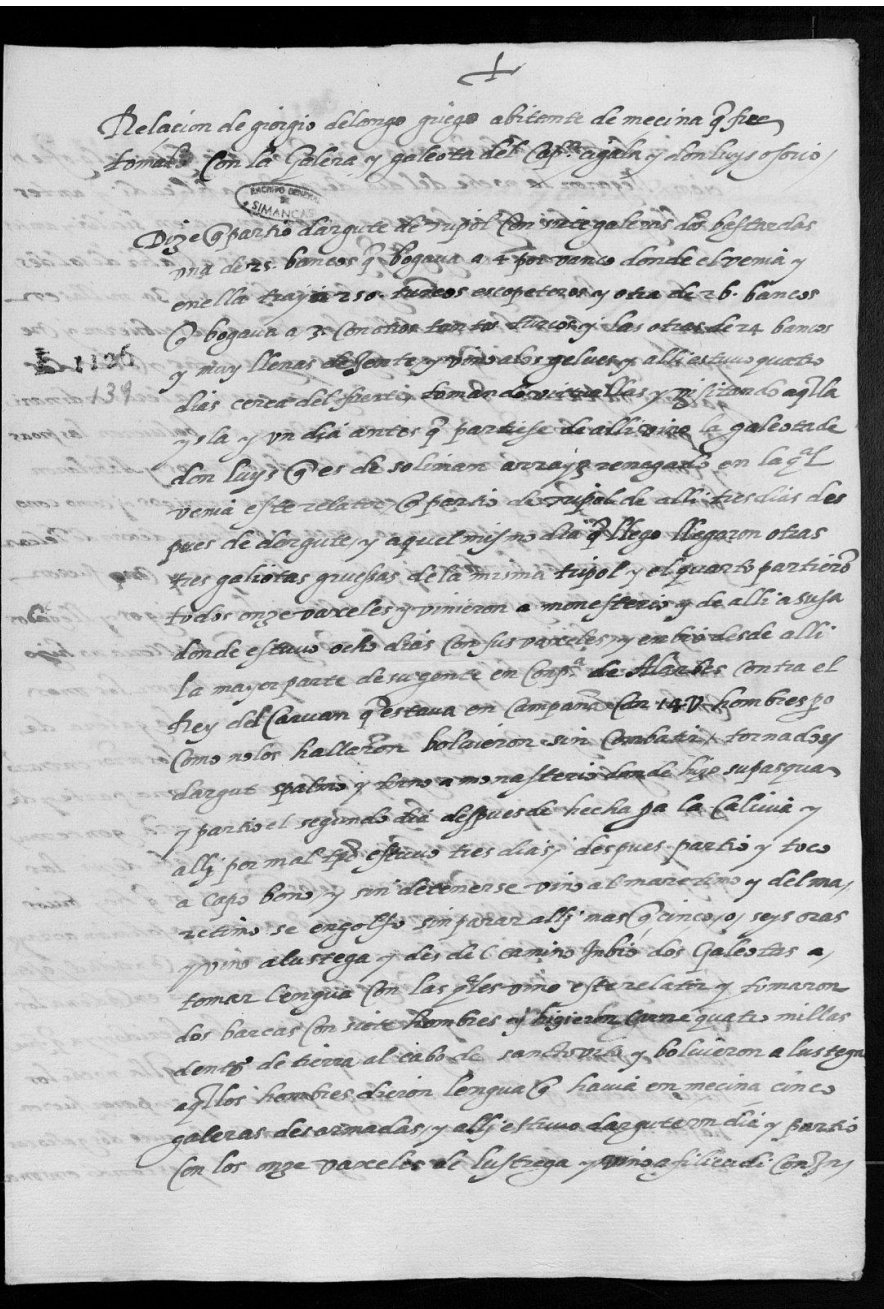 Relacion de giorgio delongo griego abitante de mecina q̃ fue
tomado con la Galera y galeota del Cap.n cigala y don luys osorio /
ARCHIVO GENERAL
DE
SIMANCAS
Dize q̃ partio dargute de tripol con siete galeras dos bestardas
vna de 25. bancos q̃ bogava a 4 por vanco donde el venia y
en ella trayn 250. turcos escopeteros y otra de 26. bancos
q̃ bogava a 3. con otros tantos turcos y las otras de 24 bancos
E 1126
y muy llenas de Jente y vino a los gelues y alli estuvo quatro
139
dias cerca del fuerte tomando vituallas y visitando aq̃lla
ysla y vn dia antes q̃ partiese de alli vino la galeota de
don luys q̃ es de soliman arrayz renegado en la q̃l
venia este relator q̃ partio de tripol de alli tres dias des
pues de dorgute, y aquel mismo dia q̃ llego llegaron otras
tres galiotas gruessas de la misma tripol y el quarto partierõ
todos onze vaxceles y vinieron a monesterio y de alli a susa
donde estuvo ocho dias con sus vaxceles, y enbio desde alli
la mayor parte de su gente en comp.a de Alarbes contra el
Rey del Caruan q̃ estava en campaña con 14 U hombres po
como no los hallaron bolvieron sin combatir / tornados
dargut spalmo y torno a monasterio donde hizo su pasqua
y partio el segundo dia despues de hecha pa la Calivia y
allj por mal tpõ estuvo tres dias, despues partio y toco
a capo bono, y sin detenerse vino al maretimo y del ma,
retimo se engolfo sin parar allj mas q̃ cinco, o, seys oras
y vino a lustega y des de camino Inbio dos Galeotas a,
tomar lengua con las q̃les vino este relator y tomaron
dos barcas con siete hombres y hizieron carne quatro millas
dentº de tierra al cabo de sancto vito y bolvieron a lustega
aq̃llos hombres dieron lengua q̃ havia en mecina cinco
galeras desarmadas, y allj estuvo dargute vn dia y partio
con los onze vaxceles de lustrega y vino a filicudi con